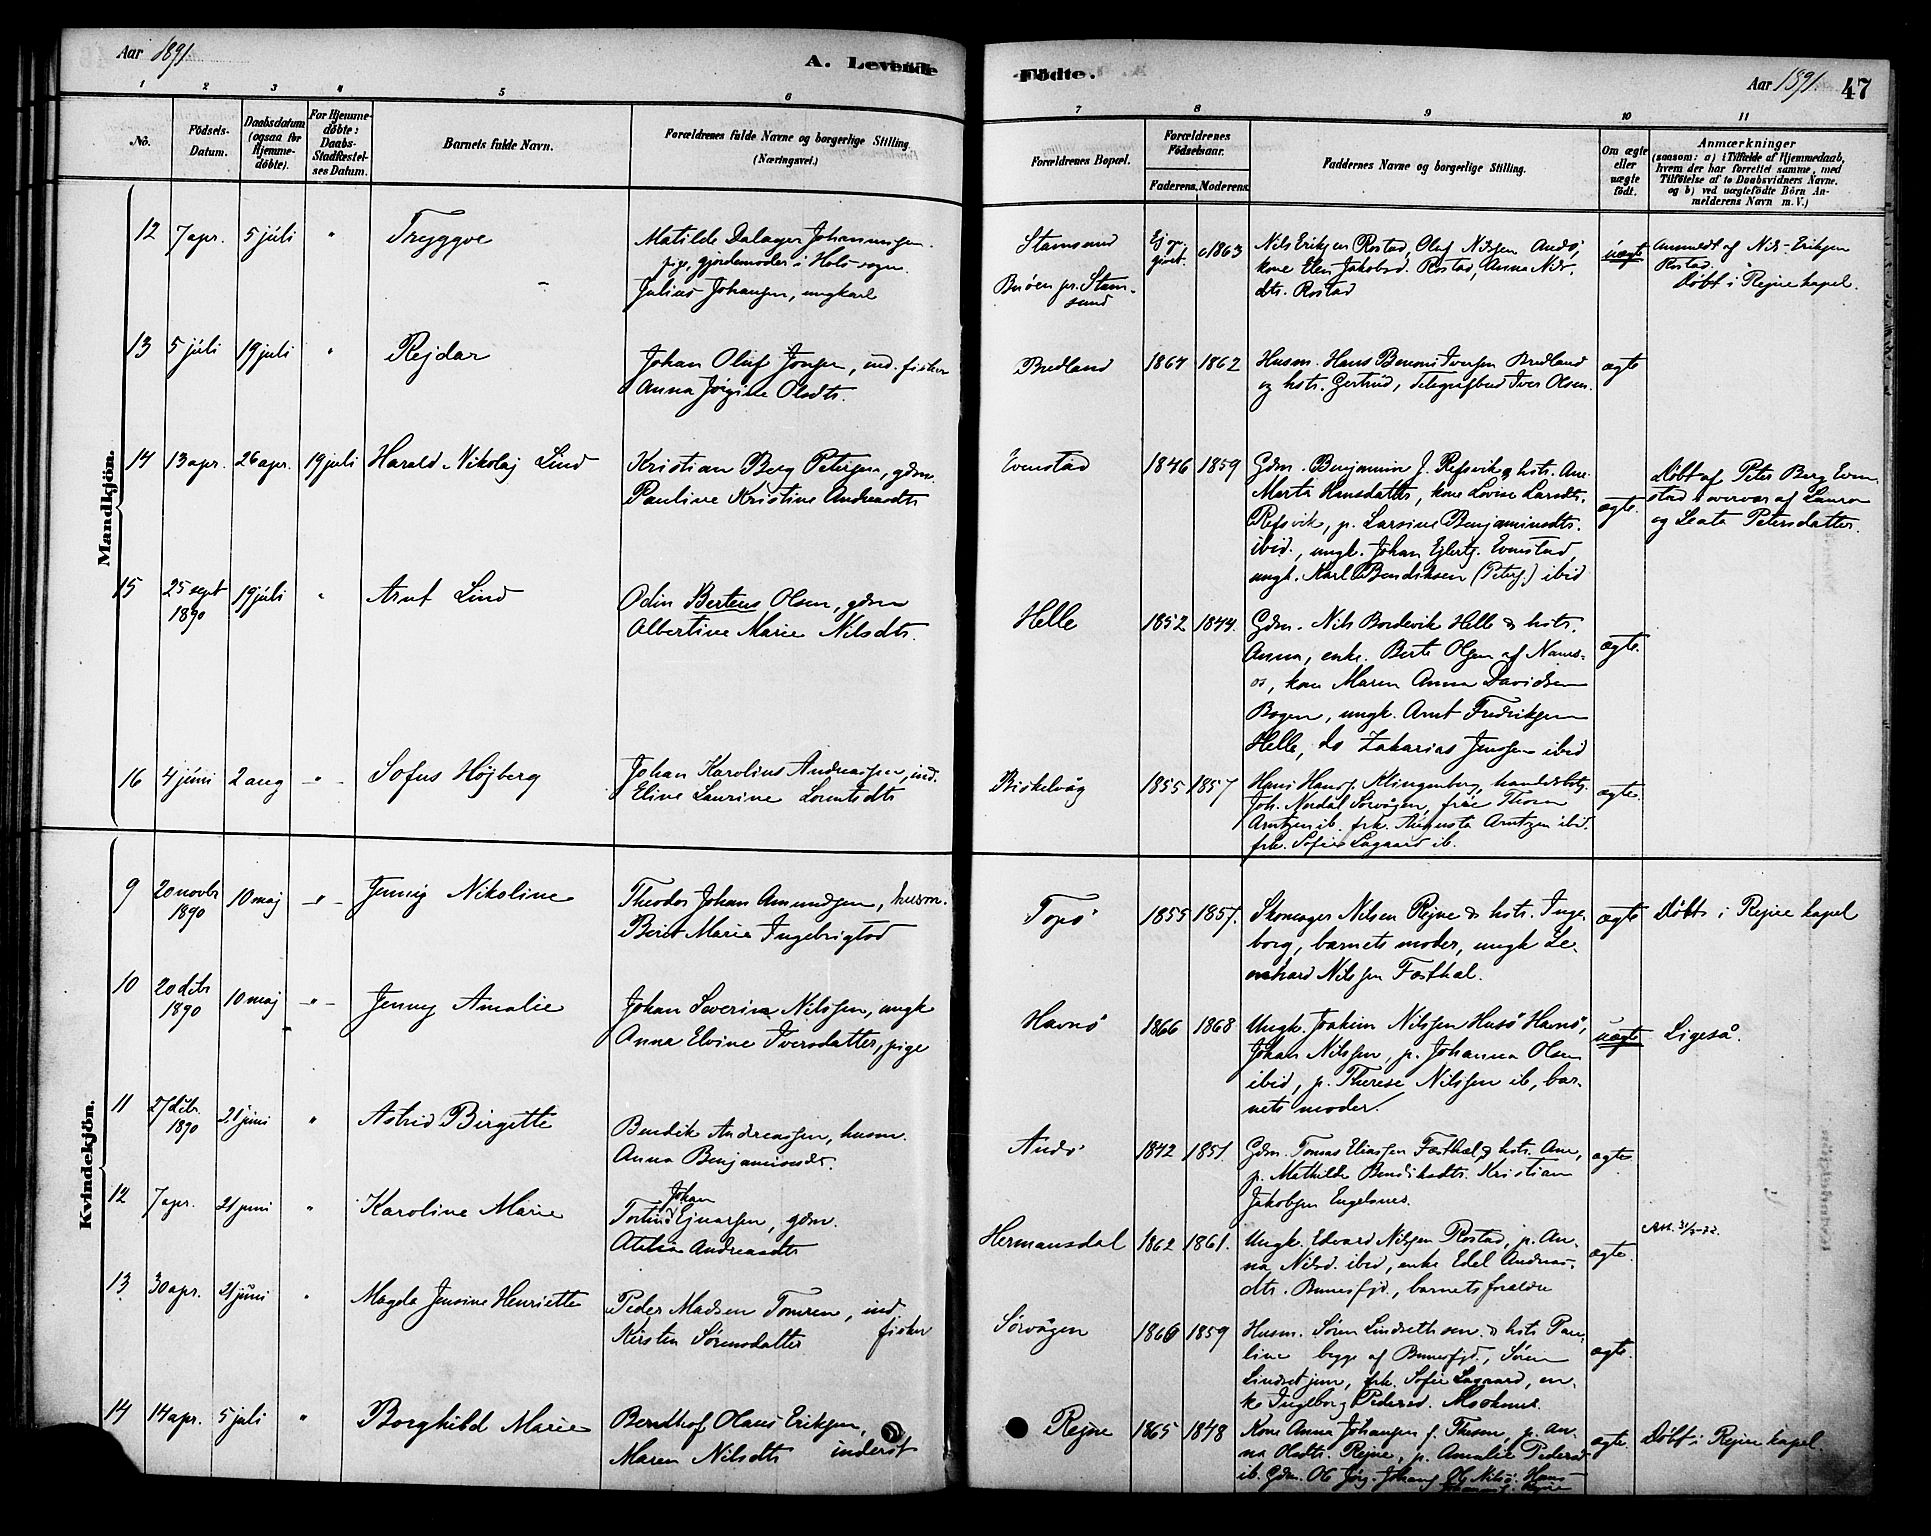 Aar 1891.
A. Levende
Födte.
Aar 1891.
47
1
2
3
4
5
6
7
8
9
10
11
No.
Födsels-
Datum.
Daabsdatum
(ogsaa for
Hjemme-
döbte).
For Hjemme-
döbte:
Daabs-
Stadfæstel-
ses Datum.
Barnets fulde Navn.
Forældrenes fulde Navne og borgerlige Stilling
(Næringsvei.)
Forældrenes Bopæl.
Forældrenes
Födselsaar.
Faderens. Moderens.
Faddernes Navne og borgerlige Stilling.
Om ægte
eller
uægte
födt.
Anmærkninger
(saasom: a) i Tilfælde af Hjemmedaab,
hvem der har forrettet samme, med
Tilföielse af to Daabsvidners Navne.
og b) ved uægtefödte Börn An-
melderens Navn m. V.)
Mandkjön.
12 7 apr. 5 júli " Tryggve
Matilde Dalager Johannesen
pige, gjordemoder i Hols sogn.
Julius Johansen, ungkarl
Stamsund
Buöen pr. Stam-
sund
Ej
givet. 1863
Nils Eriksen Rostad, Oluf Nilssen Andö,
kone Elen Jakobsd. Rostad, Anna Nils-
dtr. Rostad
uægte
Anmeldt af Nils Eriksen
Rostad.
Döbt i Rejne kapel.
13 5 júli 19 juli " Rejdar
Johan Oluf Jensen, ind. fisker
Anna Jörgine Olsdtr.
Bredland 1864 1862
Husm. Hans Benoni Iversen Bredland
og hstr. Gertrud, Telegrafbud Iver Olsen.
ægte
14 13 apr. 26 apr. 19 juli Harald Nikolaj Lind
Kristian Berg Petersen, gdm.
Pauline Kristine Andreasdtr
Evenstad 1846 1859
Gdm. Benjamin J. Refsvik & hstr. Ane
Marta Hansdatter, kone Lovise Larsdtr.
Refsvik, p. Larsine Benjaminsdtr.
ibid., ungk. Johan Ejlerts. Evenstad,
ungk. Karl Bendiksen (Peters.) ibid
ægte.
Döbt af Peter Berg Even-
stad i overvær af Laura
og Leata Petersdatter.
15 25 sept 1890 19 júli " Arnt Lind
Odin Berteus Olsen, gdm
Albertine Marie Nilsdtr.
Helle 1852 1844.
Gdm. Nils Bordevik Helle & hstr.
Anna, enke Berte Olsen af Nams-
os, kone Maren Anna Davidsen
Bogen, ungk. Arnt Fredriksen
Helle, do Zakarias Jenssen ibid
ægte.
16 4 júni 2 aug - " - Sofus Höjberg
Johan Karolius Andreassen, ind.
Eline Laurine Lorntsdtr
Birkelvåg 1855 1857
Hans Hansj. Klingenberg, handelsbetj.
Joh. Nordal Sörvågen, frue Thora
Arntzen ib. frk. Augusta Arntzen ibid.
frk. Sofie Lagaard ib.
ægte.
Kvindekjön.
9 20 novbr 1890 10 maj - " - Jenny Nikoline
Theodor Johan Amundsen, husm.
Berit Marie Ingebrigtsd
Topö 1855 1857.
Skomager Nilsen Rejne & hstr. Inge-
borg, barnets moder, ungk Le-
onhard Nilssen Forsthal.
ægte
Döbt i Rejne kapel
10 20 dcbr 1890 10 maj - " - Jenny Amalie
Johan Severin Nilssen, ungk
Anna Elvine Iversdatter, pige
Havnö 1866 1868
Ungk. Joakim Nilssen Husö Havnö,
Johan Nilssen, p. Johanna Olsen
ibid, p. Therese Nilssen ib, bar-
nets moder.
uægte
Ligeså.
11 27 dcbr. 1890 21 juni " Astrid Birgitte
Bendik Andreassen, husm.
Anna Benjaminsdr.
Andö 1842 1851.
Gdm. Tomas Eliassen Forsthal & hstr. Ane,
p. Mathilde Bendiksdtr. Kristian
Jakobsen Engelsnes.
ægte
12 7 apr. 21 juni " Karoline Marie
Johan
Ejnarsen, gdm.
Atelia Andreasdtr
Hermansdal 1862 1861.
Ungk. Edvard Nilsen Rostad, p. An-
na Nilsd. ibid, enke Edel Andreas-
dtr. Bunesfjd., barnets forældre
ægte
13 30 apr. 21 júni " Magda Jensine Henriette
Peder Madsen Tomren, ind
fisker
Kirsten Sörensdatter
Sörvågen 1860 1859
Husm. Sören Lindseth sen. & hstr. Pau-
line begge af Bunesfjd., Sören
Lindset jun, frk. Sofie Lagaard, en-
ke Ingeborg Pedersd. Moskenes.
ægte.
14 14 apr. 5 juli " Borghild Marie
Berndhof Olaus Eriksen,
Maren Nilsdtr inderst
Rejne 1865 1848
Kone Anna Johansen f. Thesen, p. An-
na Olsdtr. Rejne, p. Amalie Pedersd
ib. Gdm.
ægte.
Döbt i Rejne kapel.